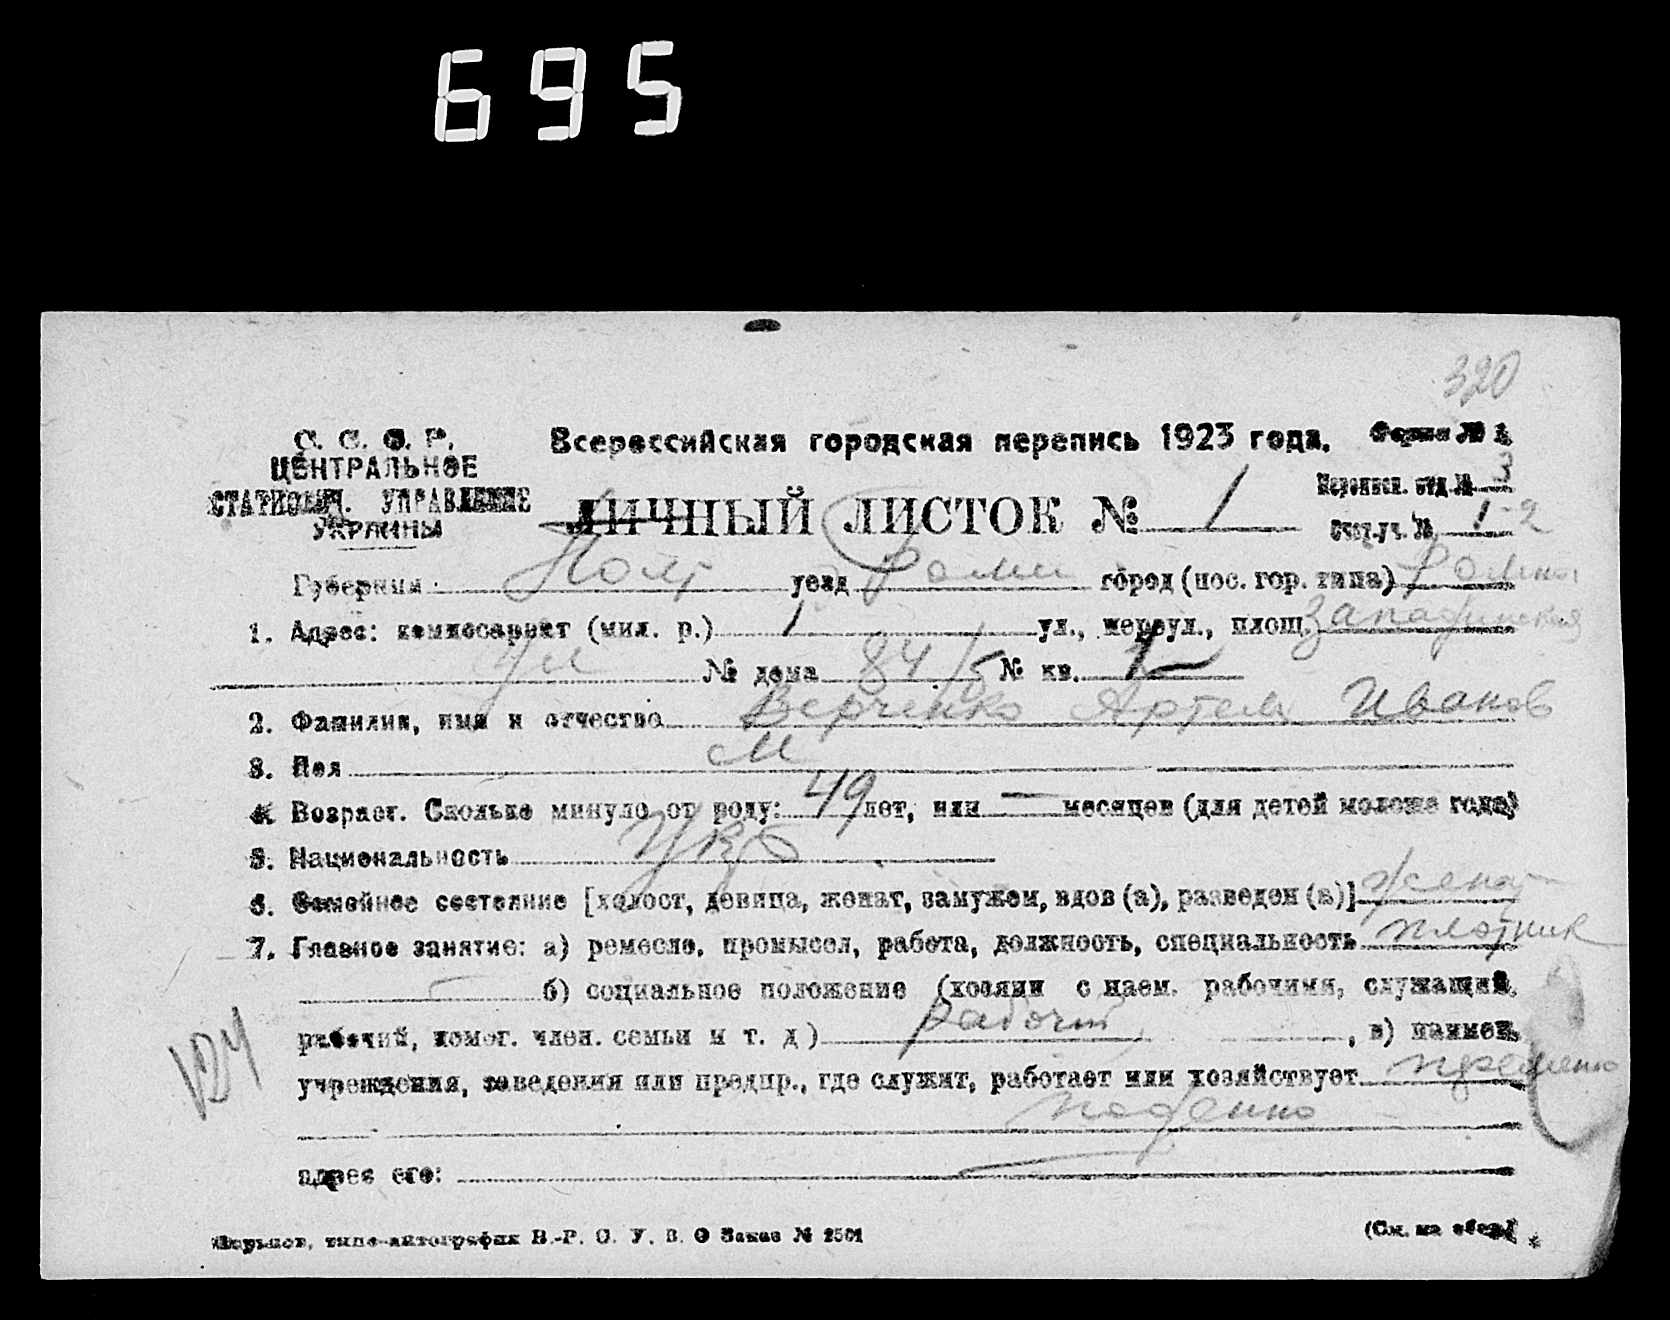 695
320
С. С. С. Р.
ЦЕНТРАЛЬНОЕ
СТАТИСТИЧ. УПРАВЛЕНИЕ
УКРАИНЫ
Всероссийская городская перепись 1923 года.
Форма № 1.
ЛИЧНЫЙ ЛИСТОК № 1
Переписн. отд. № 3
Счет. уч. № 1-2
Губерния: Полт уезд Ромн город (пос. гор. типа) Ромны
1. Адрес: комиссариат (мил. р.) 1 ул., переул., площ.
№ дома 84/5 № кв. 1
2. Фамилия, имя и отчество Верченко Артем Иванов
3. Пол М
4. Возраст. Сколько минуло от роду: 49 лет, или — месяцев (для детей моложе года)
5. Национальность Укр
6. Семейное состояние [холост, девица, женат, замужем, вдов (а), разведен (а)] женат
7. Главное занятие: а) ремесло, промысел, работа, должность, специальность плотник
б) социальное положение (хозяин с наем. рабочими, служащий,
рабочий, помог. член. семьи и т. д) рабочий, в) наимен.
учреждения, заведения или предпр., где служит, работает или хозяйствует
поденно
адрес его:
Харьков, типо-литография В.-Р. С. У. В. О Заказ № 2501
(См. на обор.)